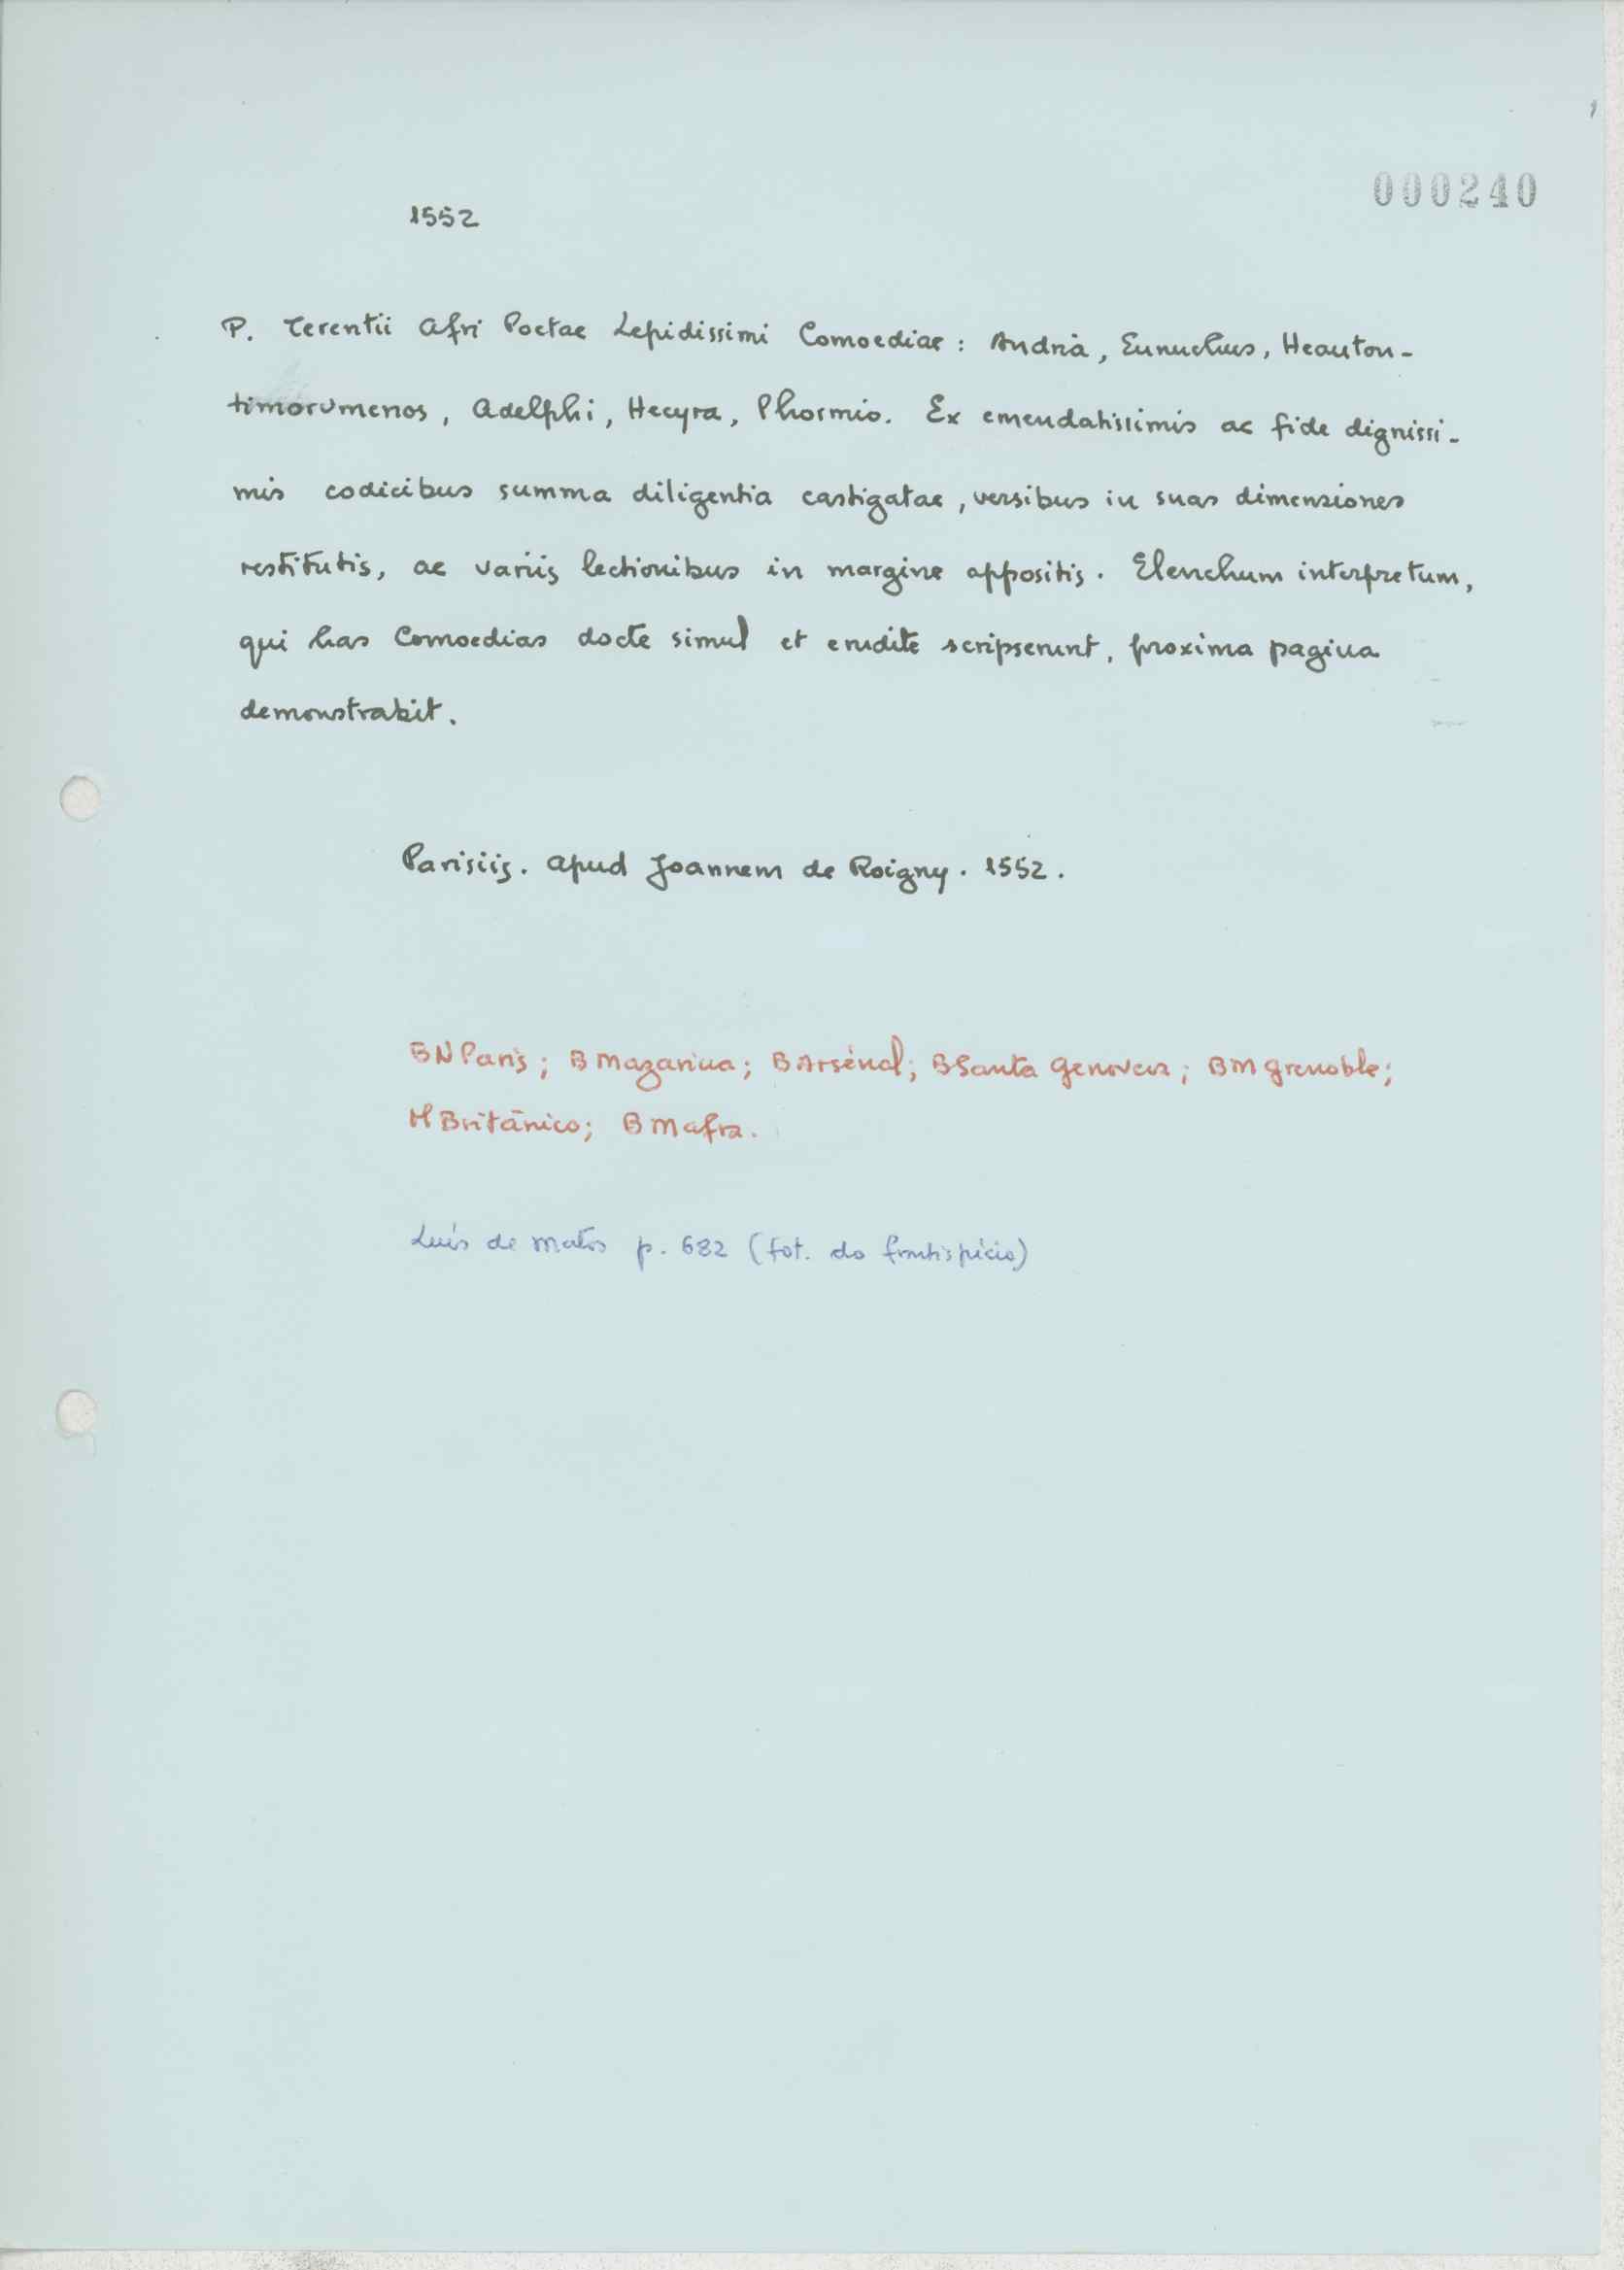 000240
1552
P. Terentii Afri Poetae Lepidissimi Comoediae : Andria, Eunuchus, Heauton-
timorumenos, Adelphi, Hecyra, Phormio. Ex emendatissimis ac fide dignissi-
mis codicibus summa diligentia castigatae, versibus in suas dimensiones
restitutis, ac variis lectionibus in margine appositis. Elenchum interpretum,
qui has Comoedias docte simul et erudite scripserunt, proxima pagina
demonstrabit.
Parisiis. Apud Joannem de Roigny. 1552.
BNParis; B Mazarina; B Arsénal; B Santa Genoveva; BM Grenoble;
M Britânico; B Mafra.
Luís de Matos p. 682 (fot. do frontispício)